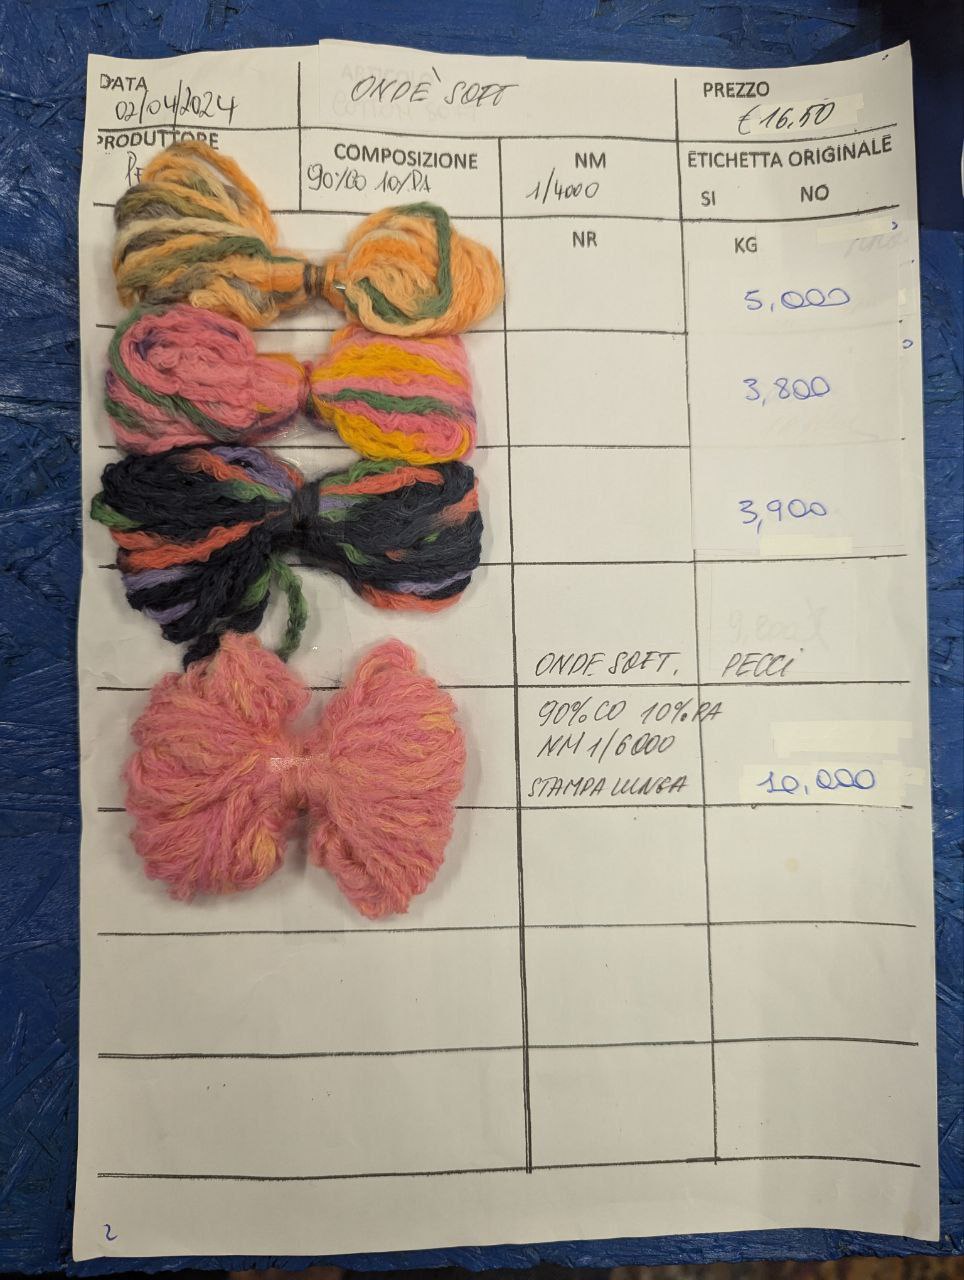 DATA
02/04/2024
ONDE' SOFT
PREZZO
€ 16,50
PRODUTTORE
COMPOSIZIONE
90%CO 10%PA
NM
1/4000
ETICHETTA ORIGINALE
SI NO
NR
KG
5,000
3,800
3,900
ONDE SOFT. PECCI
90% CO 10% PA
NM 1/6000
STAMPA LUNGA
10,000
2